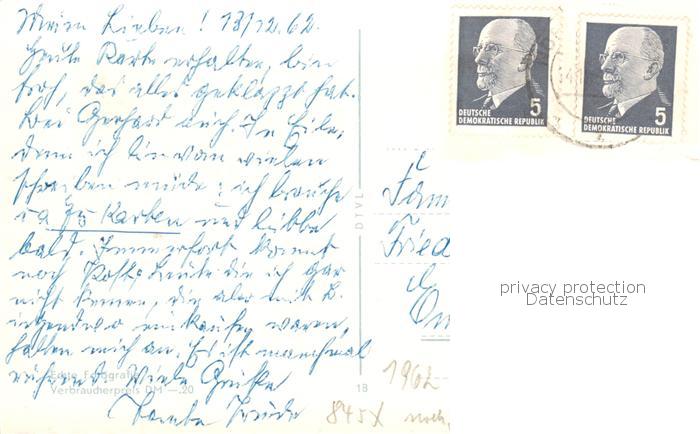 Meine Lieben! 13/12.62.
Heute Karte erhalten, bin
froh, daß alles geklappt hat.
Bei Gerhard auch. In Eile,
denn ich bin vom vielen
schreiben müde; ich brauche
ca 75 Karten und
bald. Immerfort kommt
noch Post, Leute die ich gar
nicht kenne, die aber mit
irgendwo einkaufen waren,
halten mich an. Es ist manchmal
rührend. Viele Grüße
Tante Trude
Echte Fotografie
Verbraucherpreis DM —.20
18
DTVL
DEUTSCHE
DEMOKRATISCHE REPUBLIK
5
DEUTSCHE
DEMOKRATISCHE REPUBLIK
5
Fam
Fried
privacy protection
Datenschutz
1962
845X